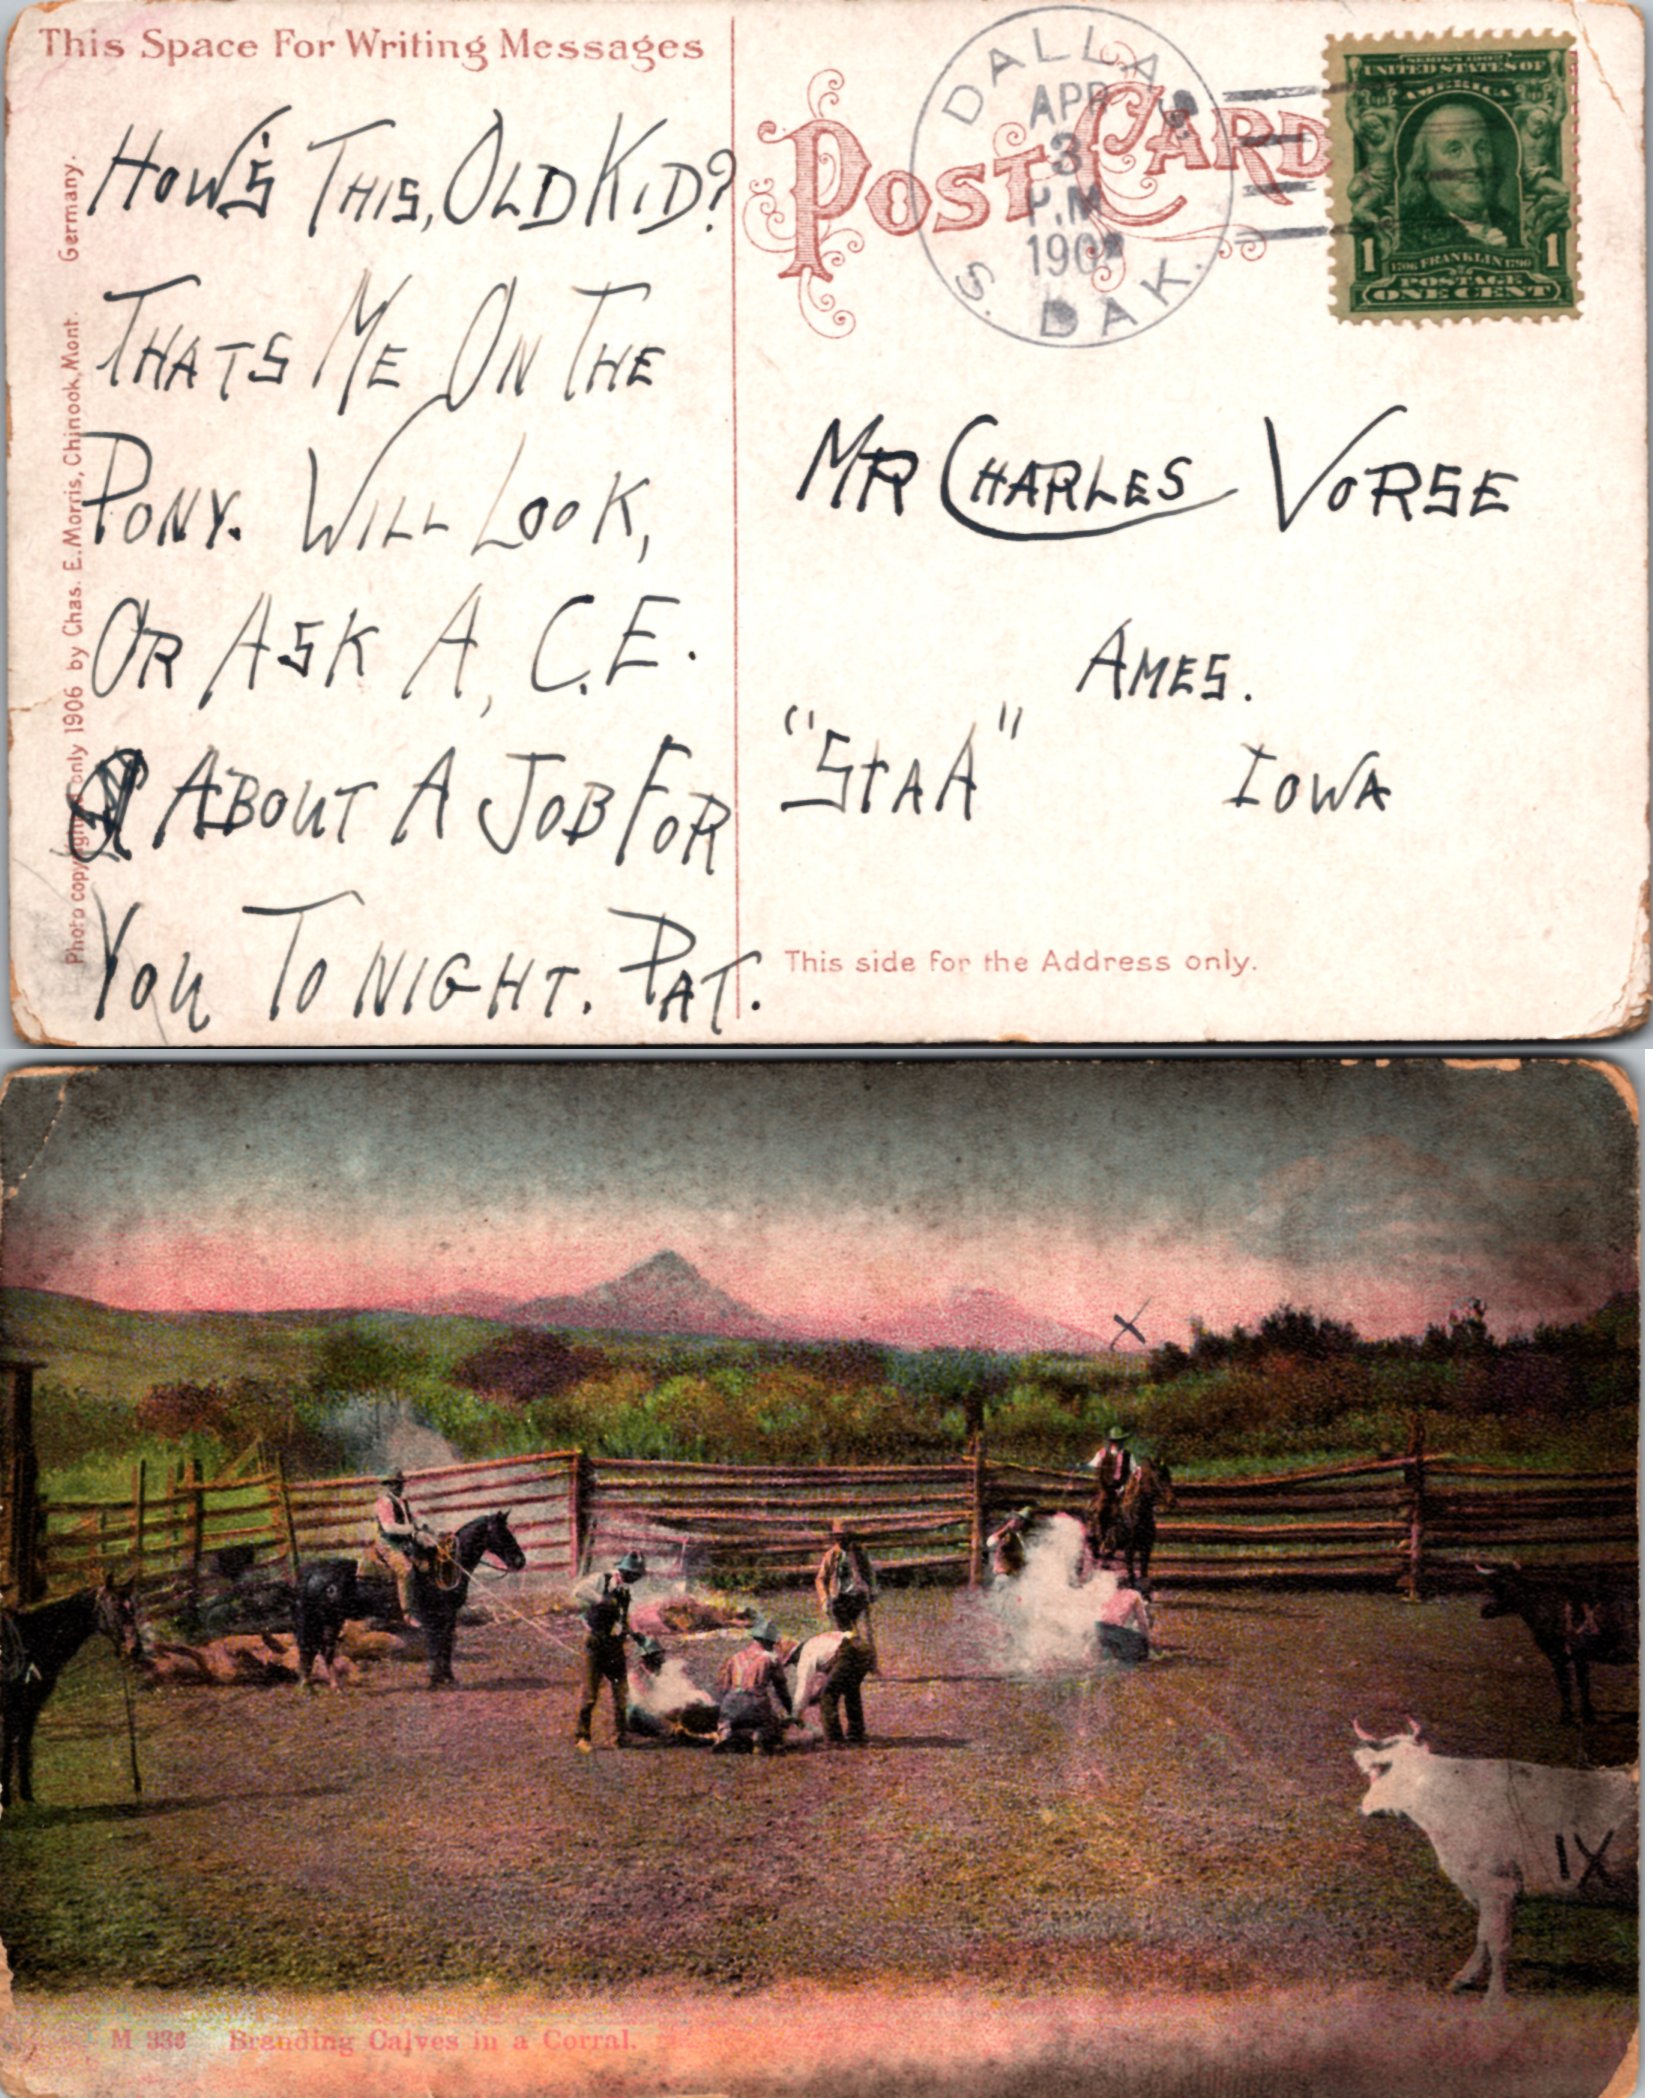 This Space For Writing Messages
HOW'S THIS, OLD KID?
THATS ME ON THE
PONY. WILL LOOK,
OR ASK A, C.E.
ABOUT A JOB FOR
YOU TO NIGHT. PAT.
Photo copyright only 1906 by Chas. E. Morris, Chinook, Mont. Germany.
POST CARD
DALLAS
APR
3
P.M.
S. DAK.
SERIES 1902
UNITED STATES OF
AMERICA
1706 FRANKLIN 1790
1 1
POSTAGE
ONE CENT
MR CHARLES VORSE
AMES.
"STAA" IOWA
This side for the Address only.
X
IX
IX
M 336 Branding Calves in a Corral.